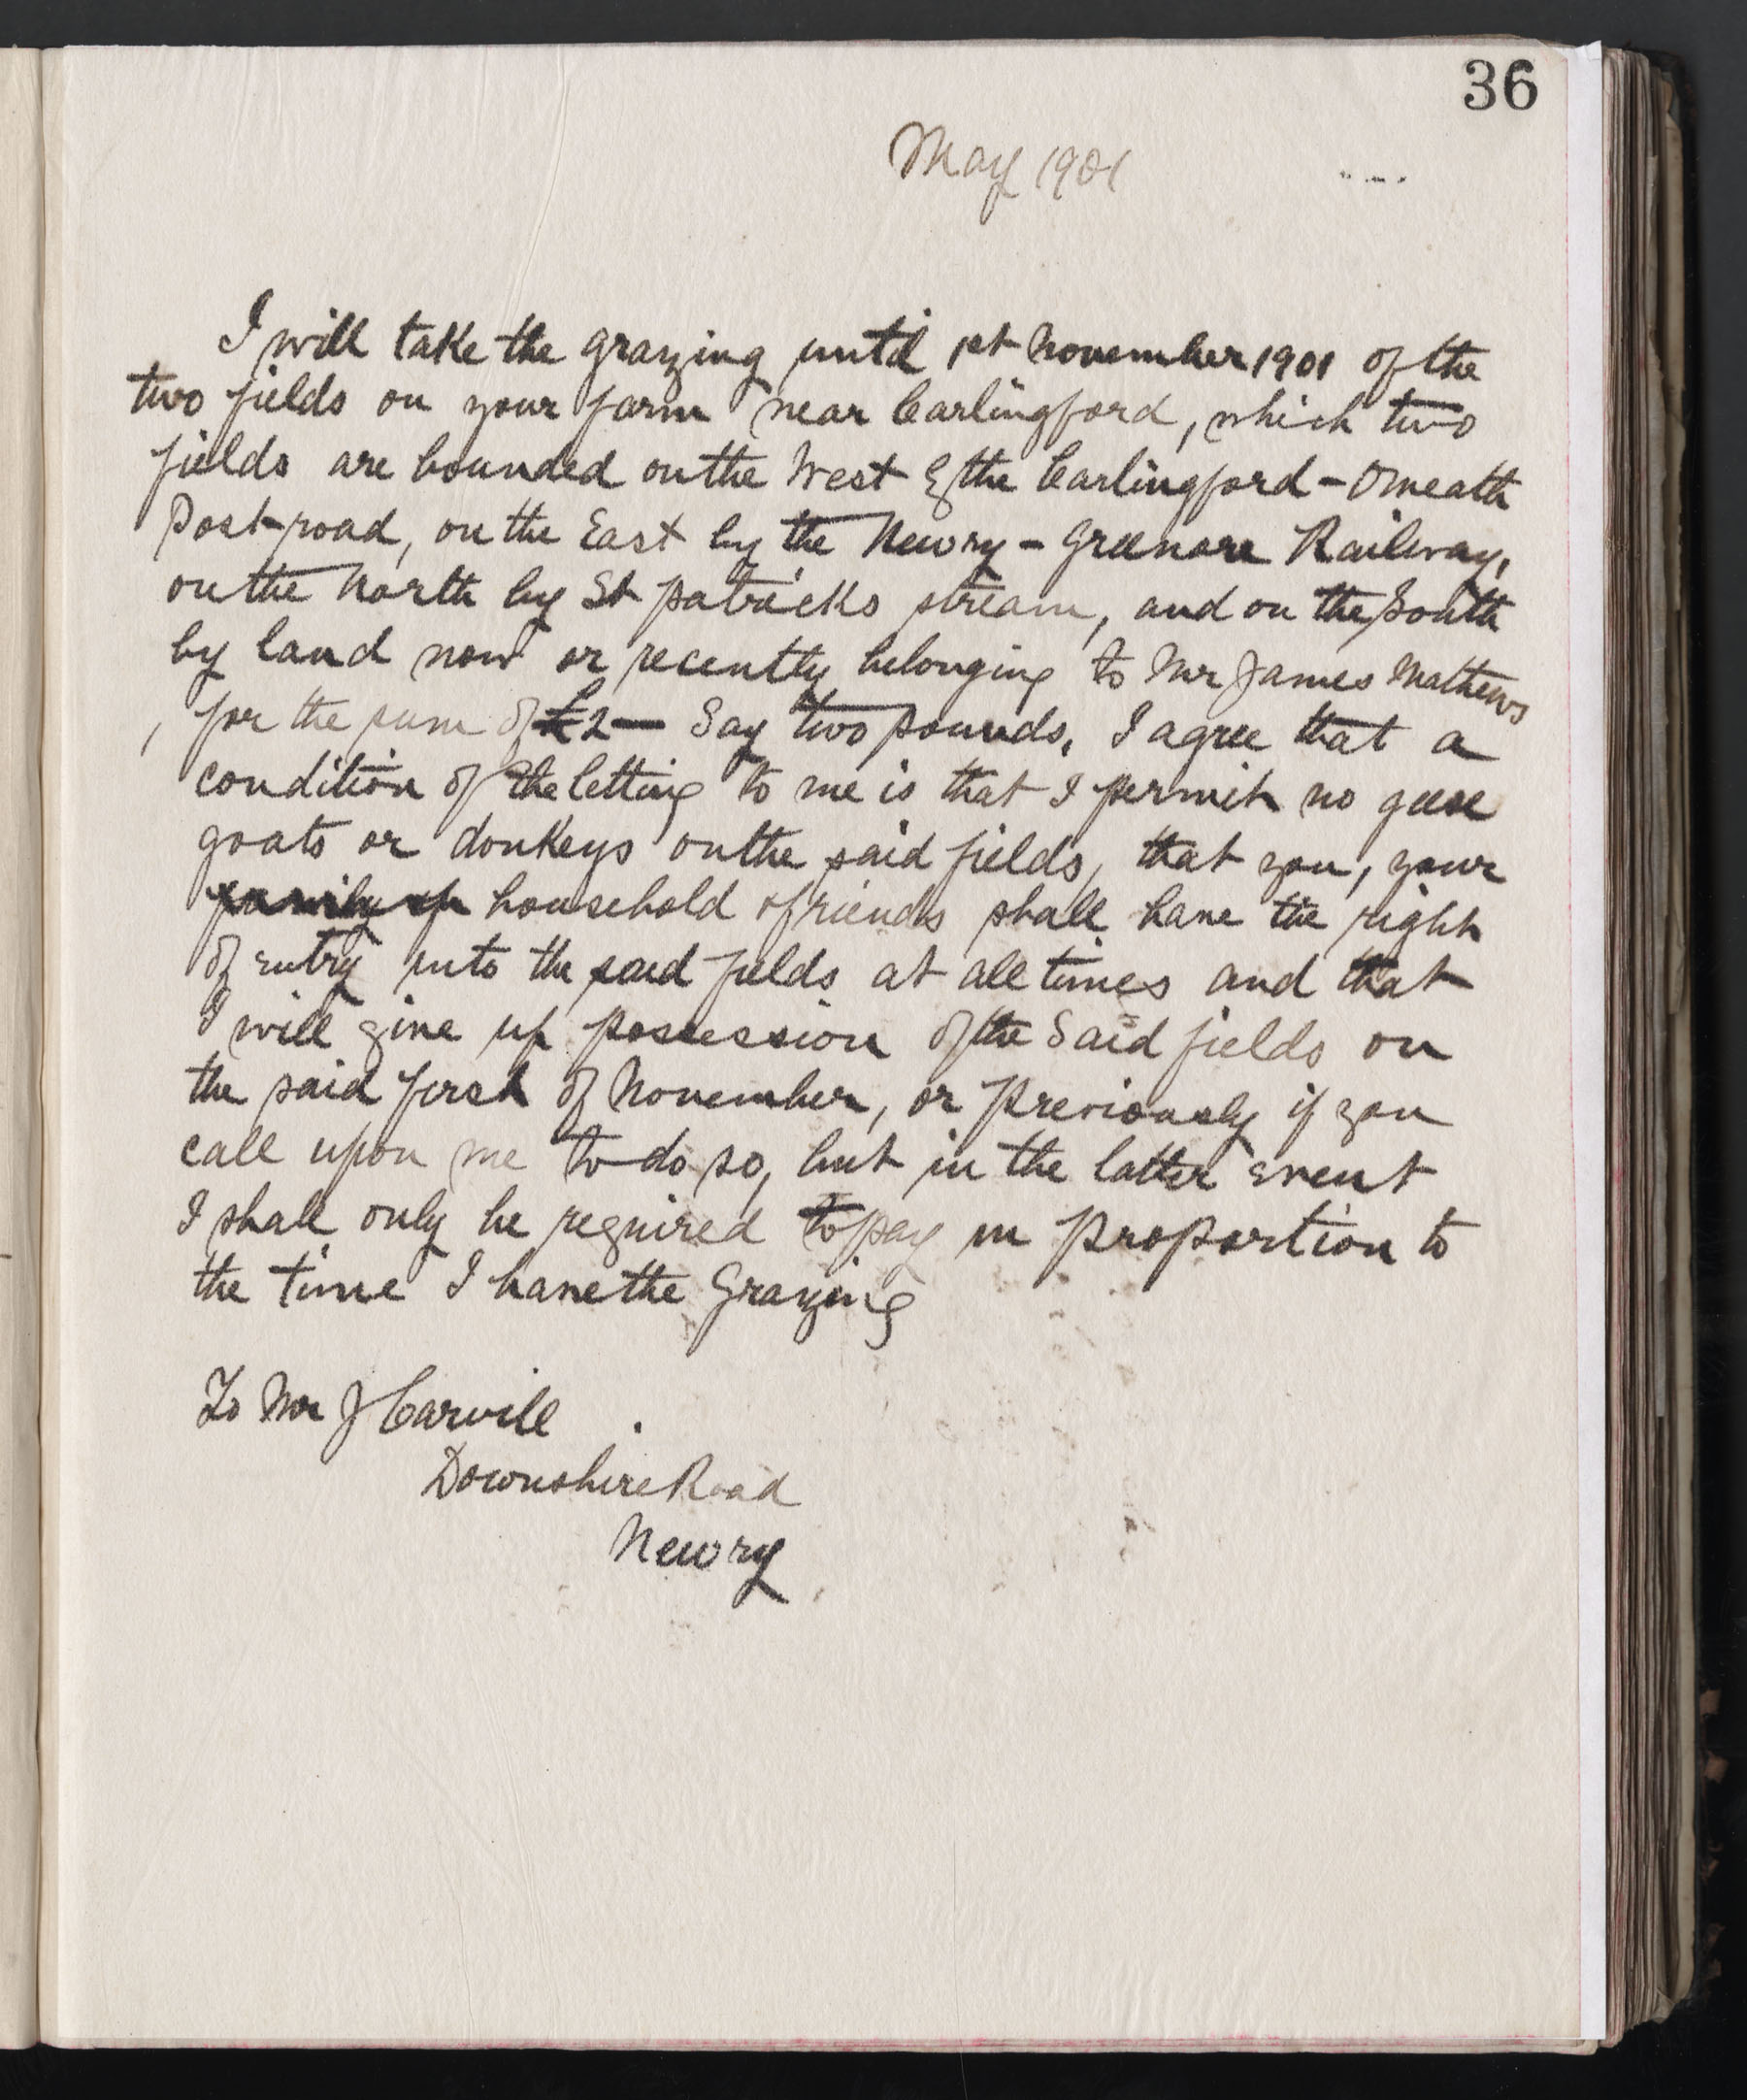 36
May 1901
I will take the grazing until 1st November 1901 of the
two fields on your farm near Carlingford, which two
fields are bounded on the West by the Carlingford - Omeath
Post-road, on the East by the Newry - Greenore Railway,
on the North by St Patricks stream, and on the South
by land now or recently belonging to Mr James Mathews
, for the sum of £2— Say two pounds, I agree that a
condition of the letting to me is that I permit no geese
goats or donkeys on the said fields, that you, your
family or household or friends shall have the right
of entry into the said fields at all times and that
I will give up possession of the said fields on
the said first of November, or previously if you
call upon me to do so, but in the latter event
I shall only be required to pay in proportion to
the time I have the Grazing
To Mr J Carvill
Downshire Road
Newry